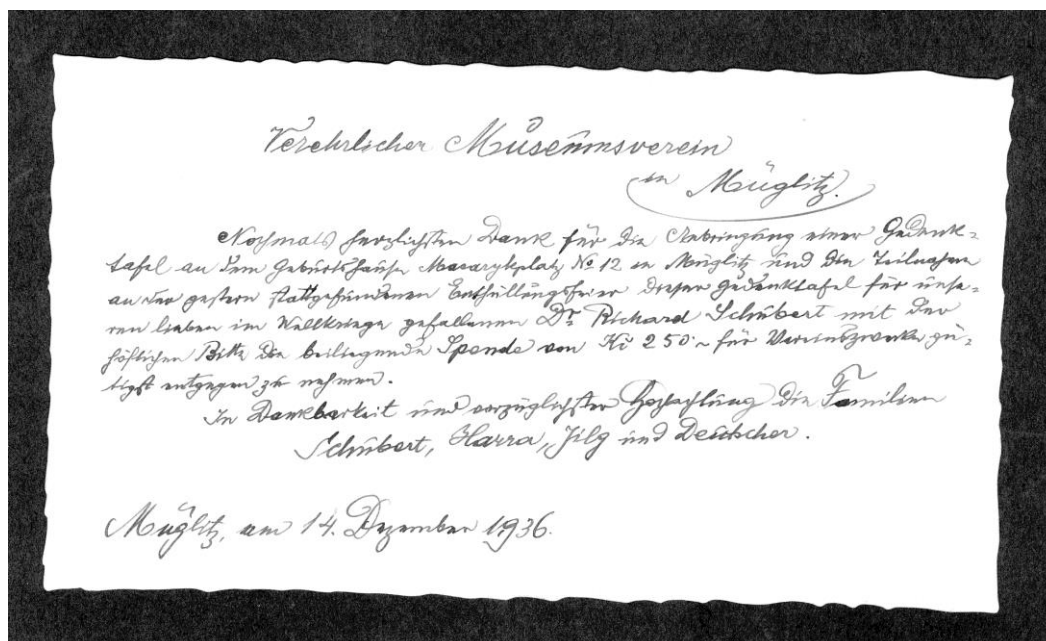 Verehrlicher Museumsverein
in Müglitz.
Nochmals herzlichsten Dank für die Anbringung einer Gedenk-
tafel an dem Geburtshause Masarykplatz No 12 in Müglitz und die Teilnahme
an der gestern stattgefundenen Enthüllungsfeier dieser Gedenktafel für unse-
ren lieben im Weltkriege gefallenen Dr. Richard Schubert mit der
höflichen Bitte die beiliegende Spende von Kč 250·- für Vereinszwecke gü-
tigst entgegen zu nehmen.
In Dankbarkeit und vorzüglichster Hochachtung die Familien
Schubert, Harra, Jilg und Deutscher.
Müglitz, am 14. Dezember 1936.